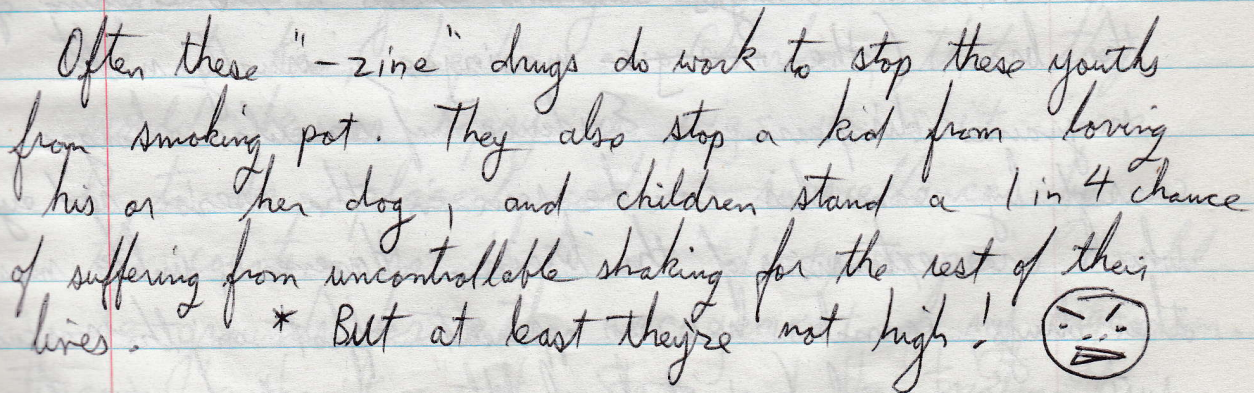 Often these "-zine" drugs do work to stop these youths
from smoking pot. They also stop a kid from loving
his or her dog, and children stand a 1 in 4 chance
of suffering from uncontrollable shaking for the rest of their
lives. * But at least they're not high!